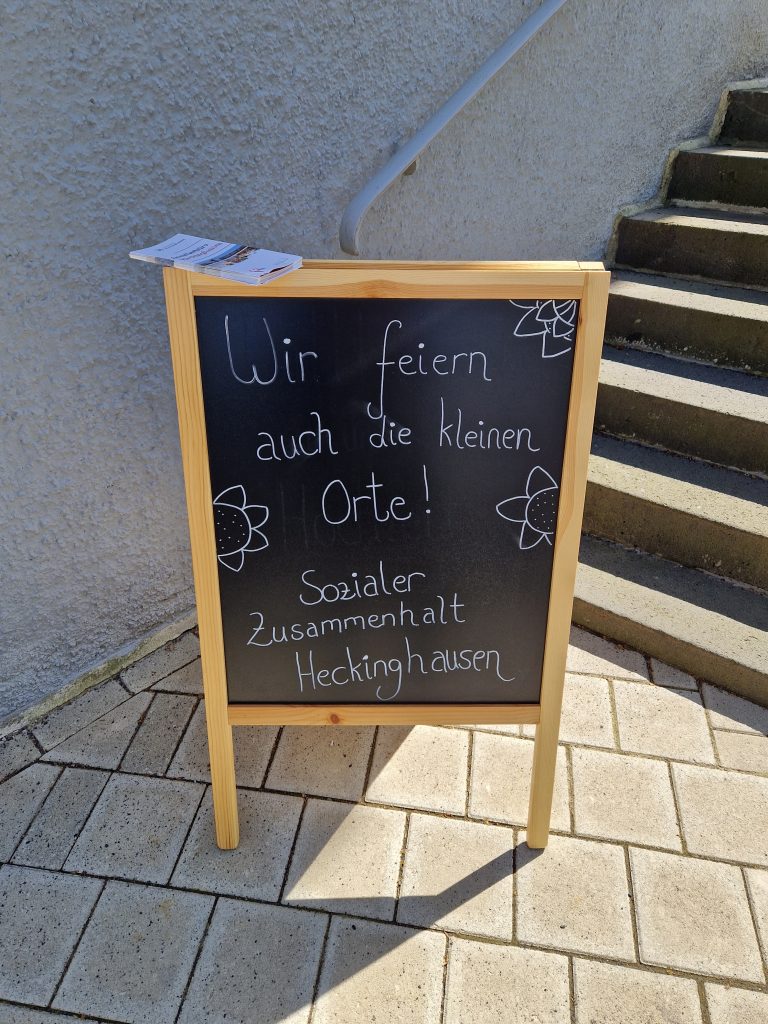 Wir feiern
auch die kleinen
Orte!
Sozialer
Zusammenhalt
Heckinghausen